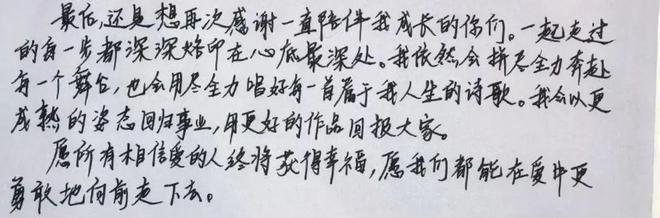 最后，还是想再次感谢一直陪伴我成长的你们。一起走过
的每一步都深深烙印在心底最深处。我依然会拼尽全力奔赴
每一个舞台，也会用尽全力唱好每一首属于我人生的诗歌。我会以更
成熟的姿态回归事业，用更好的作品回报大家。
愿所有相信爱的人终将获得幸福，愿我们都能在爱中更
勇敢地向前走下去。